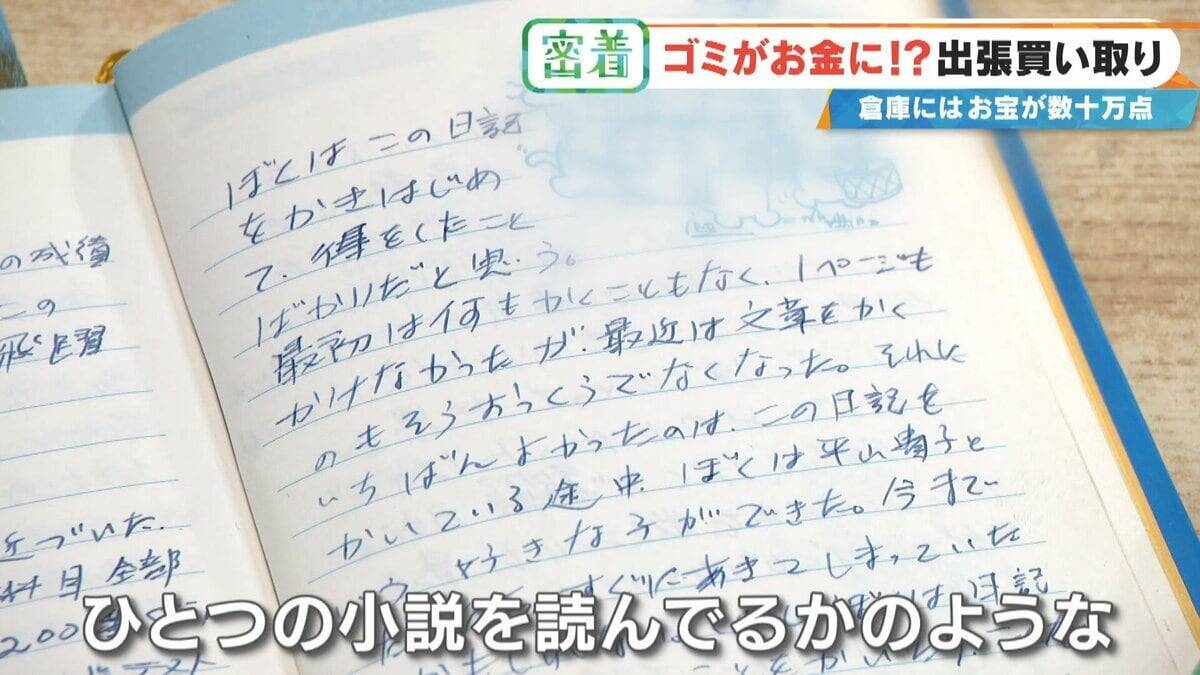 密着
ゴミがお金に!?出張買い取り
倉庫にはお宝が数十万点
ぼくはこの日記
をかきはじめ
て、得をしたこと
ばかりだと思う。
最初は何もかくこともなく、1ページも
かけなかったが、最近は文章をかく
のもそうおっくうでなくなった。それに
いちばんよかったのは、この日記を
かいている途中、ぼくは平山貴子と
いう好きな子ができた。今まで
すぐにあきてしまっていた
日記
の成績
この
近づいた。
科目全部
ひとつの小説を読んでるかのような